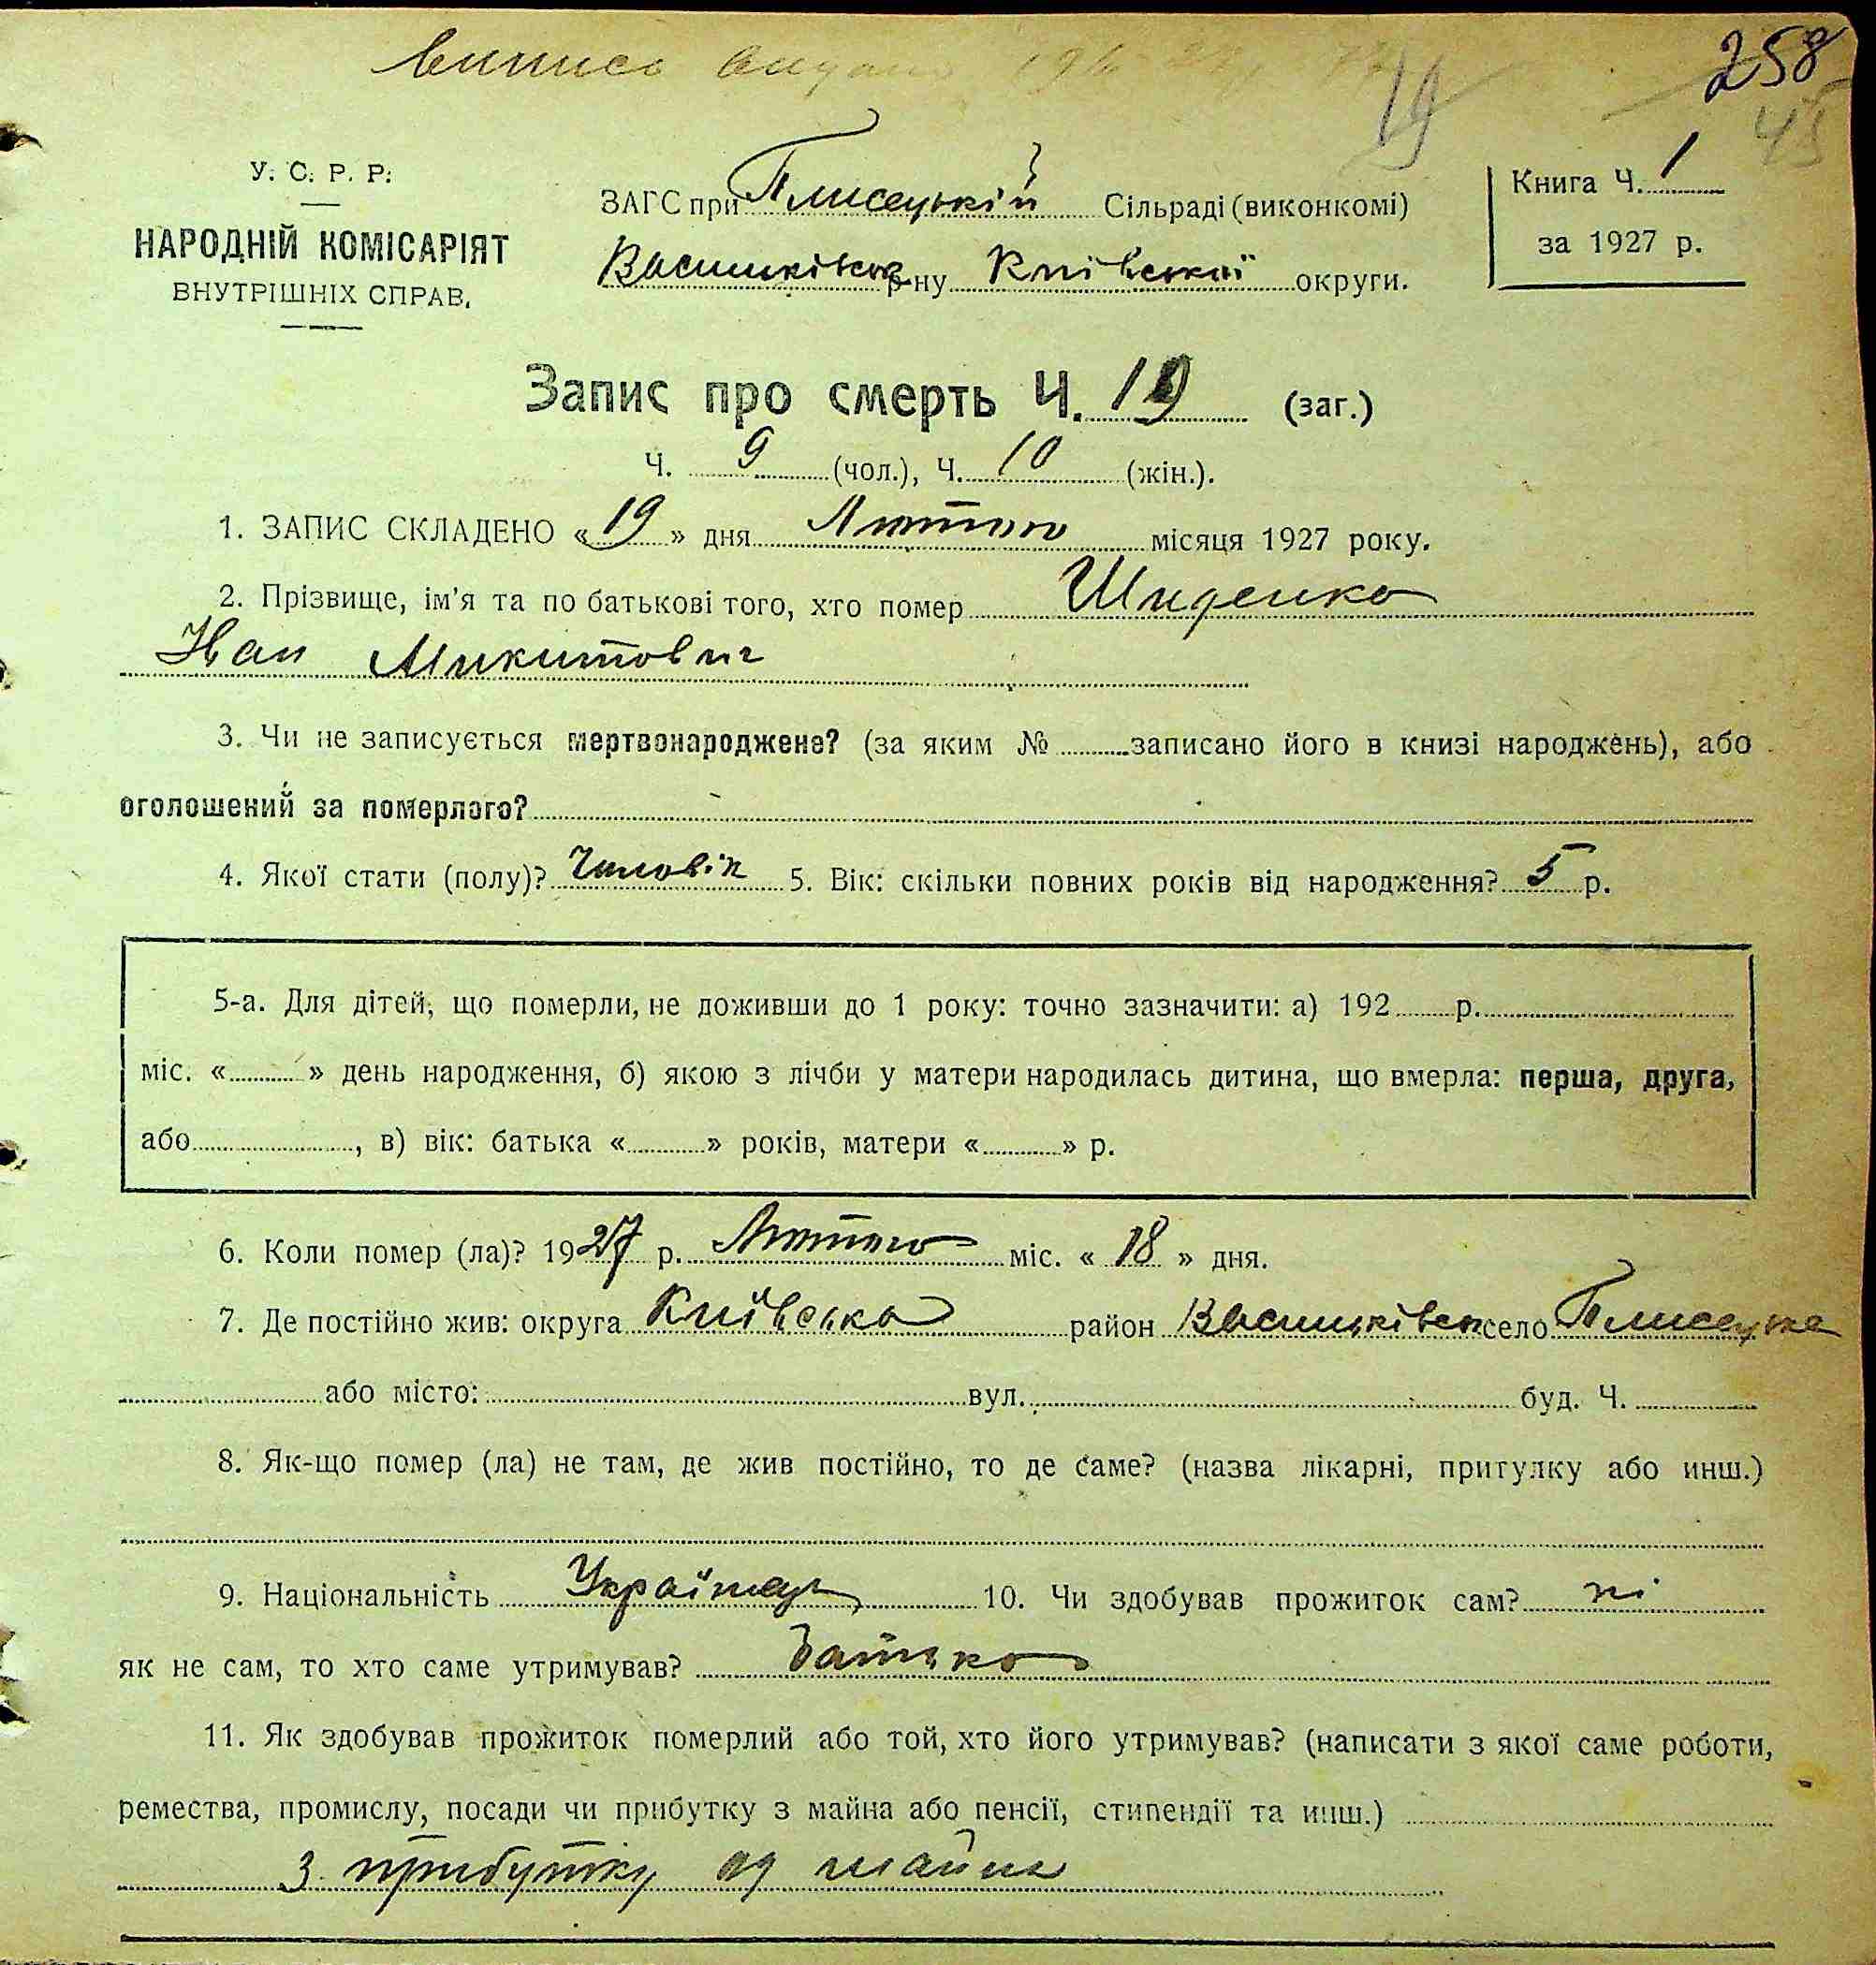 258
19
45
У. С. Р. Р.
НАРОДНІЙ КОМІСАРІЯТ
ВНУТРІШНІХ СПРАВ.
ЗАГС при Плисецькій Сільраді (виконкомі)
р-ну Київської округи.
Книга Ч. 1
за 1927 р.
Запис про смерть Ч. 19 (заг.)
Ч. 9 (чол.), Ч. 10 (жін.).
1. ЗАПИС СКЛАДЕНО «19» дня Лютого місяця 1927 року.
2. Прізвище, ім'я та по батькові того, хто помер
Микитович
3. Чи не записується мертвонароджене? (за яким № записано його в книзі народжень), або
оголошений за померлого?
4. Якої стати (полу)? Чоловік 5. Вік: скільки повних років від народження? 5 р.
5-а. Для дітей, що померли, не доживши до 1 року: точно зазначити: а) 192 р.
міс. « » день народження, б) якою з лічби у матери народилась дитина, що вмерла: перша, друга,
або , в) вік: батька « » років, матери « » р.
6. Коли помер (ла)? 1927 р. Лютого міс. « 18 » дня.
7. Де постійно жив: округа Київська район Васильківськ село Плисецьке
або місто: вул. буд. Ч.
8. Як-що помер (ла) не там, де жив постійно, то де саме? (назва лікарні, притулку або инш.)
9. Національність Українець 10. Чи здобував прожиток сам? ні
як не сам, то хто саме утримував? батько
11. Як здобував прожиток померлий або той, хто його утримував? (написати з якої саме роботи,
ремества, промислу, посади чи прибутку з майна або пенсії, стипендії та инш.)
З прибутку од майна